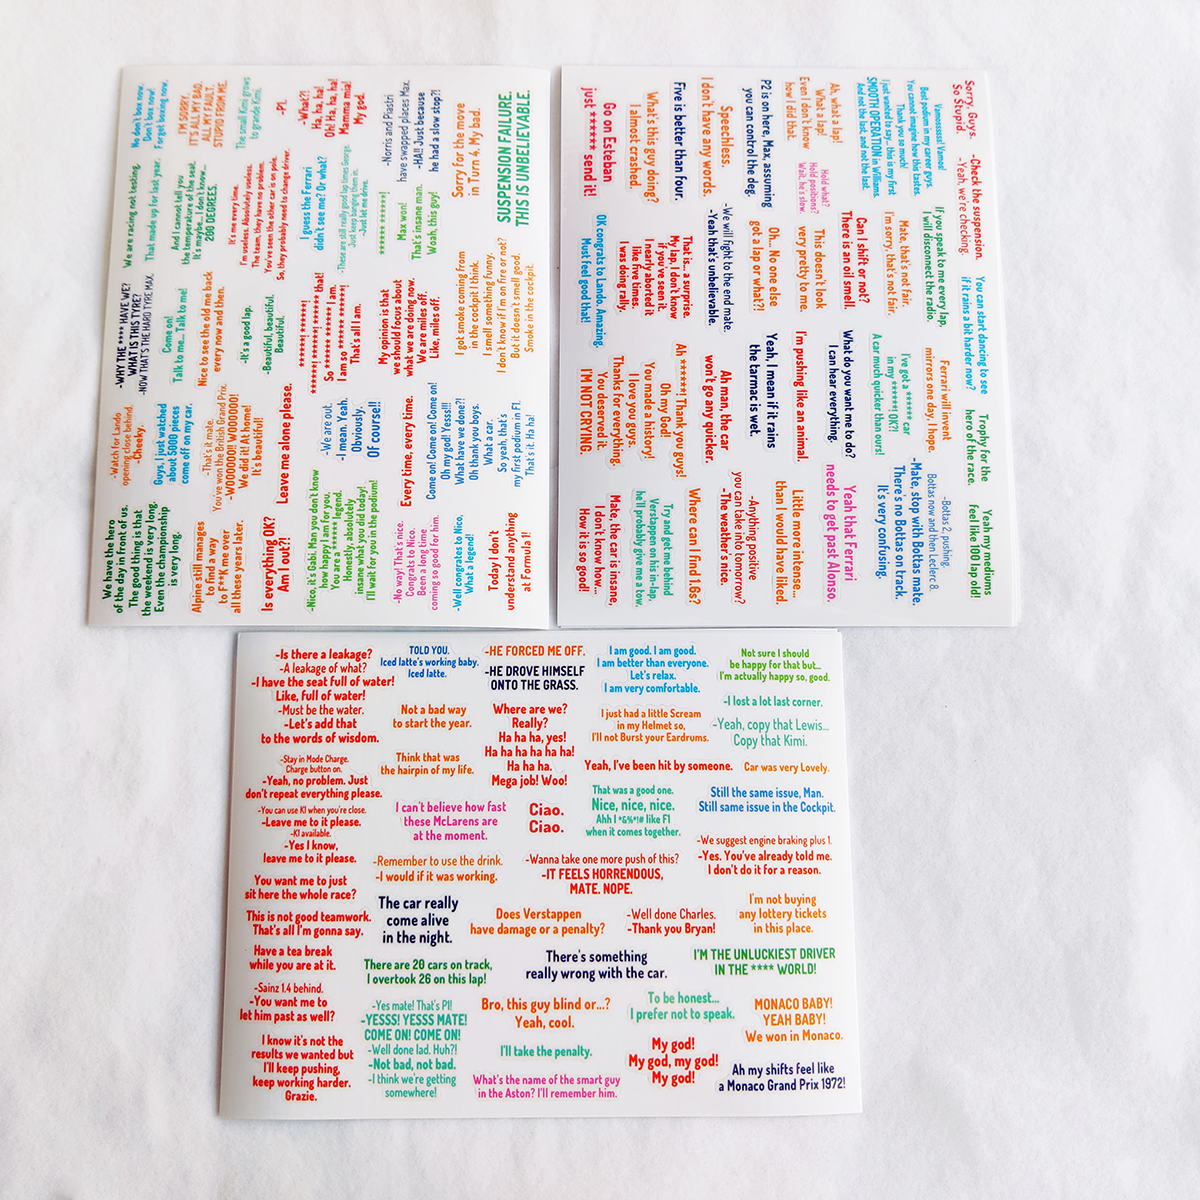 No don't box now.
Don't box now!
Forget boxing now.
I'M SORRY.
IT'S ALL MY BAD.
ALL MY FAULT.
STUPID FROM ME.
The small Kimi grows
to grande Kimi.
-P1.
-What?!
Ha, ha, ha!
Oh! Ha, ha, ha!
Mamma mia!
My god.
-Norris and Piastri
have swapped places Max.
-HA!! Just because
he had a slow stop?!
Sorry for the move
in Turn 4. My bad.
SUSPENSION FAILURE.
THIS IS UNBELIEVABLE.
We are racing not testing.
That made up for last year.
And I cannot tell you
the temperature of the seat.
It's maybe... I don't know...
200 DEGREES.
It's me every time.
I'm useless. Absolutely useless.
The team, they have no problem.
You've seen the other car is on pole.
So, they probably need to change driver.
I guess the Ferrari
didn't see me? Or what?
-These are still really good lap times George.
Just keep banging them in.
-Just let me drive.
****** ******!
Max won!
That's insane man.
Woah, this guy!
-WHY THE **** HAVE WE?
WHAT IS THIS TYRE?
-NOW THAT'S THE HARD TYRE MAX.
Come on!
Talk to me... Talk to me!
Nice to see the old me back
every now and then.
-It's a good lap.
-Beautiful, beautiful.
Beautiful.
******! ****** that!
So ****** I am.
I am so ****** ******!
That's all I am.
My opinion is that
we should focus about
what we are doing now.
We are miles off.
Like, miles off.
I got smoke coming from
in the cockpit I think.
I smell something funny.
I don't know if I'm on fire or not?
But it doesn't smell good.
Smoke in the cockpit.
-Watch for Lando
opening close behind.
-Cheeky.
Guys, I just watched
about 5000 pieces
come off on my car.
-That's it mate.
You've won the British Grand Prix.
-WOOOOOO!! WOOOOOOO!
We did it! At home!
It's beautiful!
Leave me alone please.
-We are out.
-I mean. Yeah.
Obviously.
Of course!!
Every time, every time.
Come on! Come on! Come on!
Oh my god! Yesss!!!
What have we done?!
Oh thank you boys.
What a car.
So yeah, that's
my first podium in F1.
That's it. Ha ha!
We have the hero
of the day in front of us.
The good thing is that
the weekend is very long.
Even the championship
is very long.
Alpine still manages
to find a way
to F**K me over
all these years later.
Is everything OK?
Am I out?!
-Nico, it's Gabi. Man you don't know
how happy I am for you.
You are a ****** legend.
Honestly, absolutely
insane what you did today!
I'll wait for you in the podium!
-No way! That's nice.
Congrats to Nico.
Been a long time
coming so good for him.
-Well congrates to Nico,
What a legend!
Today I don't
understand anything
at Formula 1!
Sorry, Guys.
So Stupid.
-Check the suspension.
-Yeah, we're checking.
Vamosssssss! Vamos!
Best podium in my career guys.
You cannot imagine how this tastes.
Thank you so much!
I just wanted to say... this is my first
SMOOTH OPERATION in Williams.
And not the last, and not the last.
Ah, what a lap!
What a lap!
Even I don't know
how I did that.
Hold what?
Hold positions?
Wait, he's slow.
P2 is on here, Max, assuming
you can control the deg.
Speechless.
I don't have any words.
Five is better than four.
What's this guy doing?
I almost crashed.
Go on Esteban
just ****** send it!
If you speak to me every lap,
I will disconnect the radio.
Mate, that's not fair.
I'm sorry, that's not fair.
Can I shift or not?
There is an oil smell.
This doesn't look
very pretty to me.
Oh... No one else
got a lap or what?!
-We will fight to the end mate.
-Yeah that's unbelievable.
That is... a surprise.
My lap, I don't know
if you've seen it.
I nearly aborted it
like five times.
I was doing rally.
OK congrats to Lando. Amazing.
Must feel good that!
You can start dancing to see
if it rains a bit harder now?
Ferrari will invent
mirrors one day, I hope.
I've got a ****** car
in my ******! OK?!
A car much quicker than ours!
What do you want me to do?
I can hear everything.
I'm pushing like an animal.
Yeah, I mean if it rains
the tarmac is wet.
Ah man, the car
won't go any quicker.
Ah ******! Thank you guys!
Oh my God!
You made a history!
I love you guys.
Thanks for everything.
You deserved it.
I'M NOT CRYING.
Trophy for the
hero of the race.
-Bottas 2, pushing.
Bottas now and then Leclerc 8.
-Mate, stop with Bottas mate.
There's no Bottas on track.
It's very confusing.
Yeah that Ferrari
needs to get past Alonso.
Little more intense...
than I would have liked.
-Anything positive
you can take into tomorrow?
-The weather's nice.
Where can I find 1.6s?
Try and get me behind
Verstappen on his in-lap,
he'll probably give me a tow.
Mate, the car is insane,
I don't know how...
How it is so good!
Yeah my mediums
feel like 100 lap old!
-Is there a leakage?
-A leakage of what?
-I have the seat full of water!
Like, full of water!
-Must be the water.
-Let's add that
to the words of wisdom.
-Stay in Mode Charge.
Charge button on.
-Yeah, no problem. Just
don't repeat everything please.
-You can use K1 when you're close.
-Leave me to it please.
-K1 available.
-Yes I know,
leave me to it please.
You want me to just
sit here the whole race?
This is not good teamwork.
That's all I'm gonna say.
Have a tea break
while you are at it.
-Sainz 1.4 behind.
-You want me to
let him past as well?
I know it's not the
results we wanted but
I'll keep pushing,
keep working harder.
Grazie.
TOLD YOU.
Iced latte's working baby.
Iced latte.
Not a bad way
to start the year.
Think that was
the hairpin of my life.
I can't believe how fast
these McLarens are
at the moment.
-Remember to use the drink.
-I would if it was working.
The car really
come alive
in the night.
There are 20 cars on track,
I overtook 26 on this lap!
-Yes mate! That's P1!
-YESSS! YESSS MATE!
COME ON! COME ON!
-Well done lad. Huh?!
-Not bad, not bad.
-I think we're getting
somewhere!
-HE FORCED ME OFF.
-HE DROVE HIMSELF
ONTO THE GRASS.
Where are we?
Really?
Ha ha ha, yes!
Ha ha ha ha ha ha!
Ha ha ha.
Mega job! Woo!
Ciao.
Ciao.
-Wanna take one more push of this?
-IT FEELS HORRENDOUS,
MATE. NOPE.
Does Verstappen
have damage or a penalty?
There's something
really wrong with the car.
Bro, this guy blind or...?
Yeah, cool.
I'll take the penalty.
What's the name of the smart guy
in the Aston? I'll remember him.
I am good. I am good.
I am better than everyone.
Let's relax.
I am very comfortable.
I just had a little Scream
in my Helmet so,
I'll not Burst your Eardrums.
Yeah, I've been hit by someone.
That was a good one.
Nice, nice, nice.
Ahh I *&%*!# like F1
when it comes together.
-Well done Charles.
-Thank you Bryan!
To be honest...
I prefer not to speak.
My god!
My god, my god!
My god!
Not sure I should
be happy for that but...
I'm actually happy so, good.
-I lost a lot last corner.
-Yeah, copy that Lewis...
Copy that Kimi.
Car was very Lovely.
Still the same issue, Man.
Still same issue in the Cockpit.
-We suggest engine braking plus 1.
-Yes. You've already told me.
I don't do it for a reason.
I'm not buying
any lottery tickets
in this place.
I'M THE UNLUCKIEST DRIVER
IN THE **** WORLD!
MONACO BABY!
YEAH BABY!
We won in Monaco.
Ah my shifts feel like
a Monaco Grand Prix 1972!